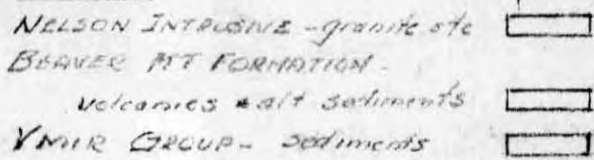 NELSON INTRUSIVE - granite etc
BEAVER MT FORMATION -
volcanics & alt sediments
YMIR GROUP - sediments